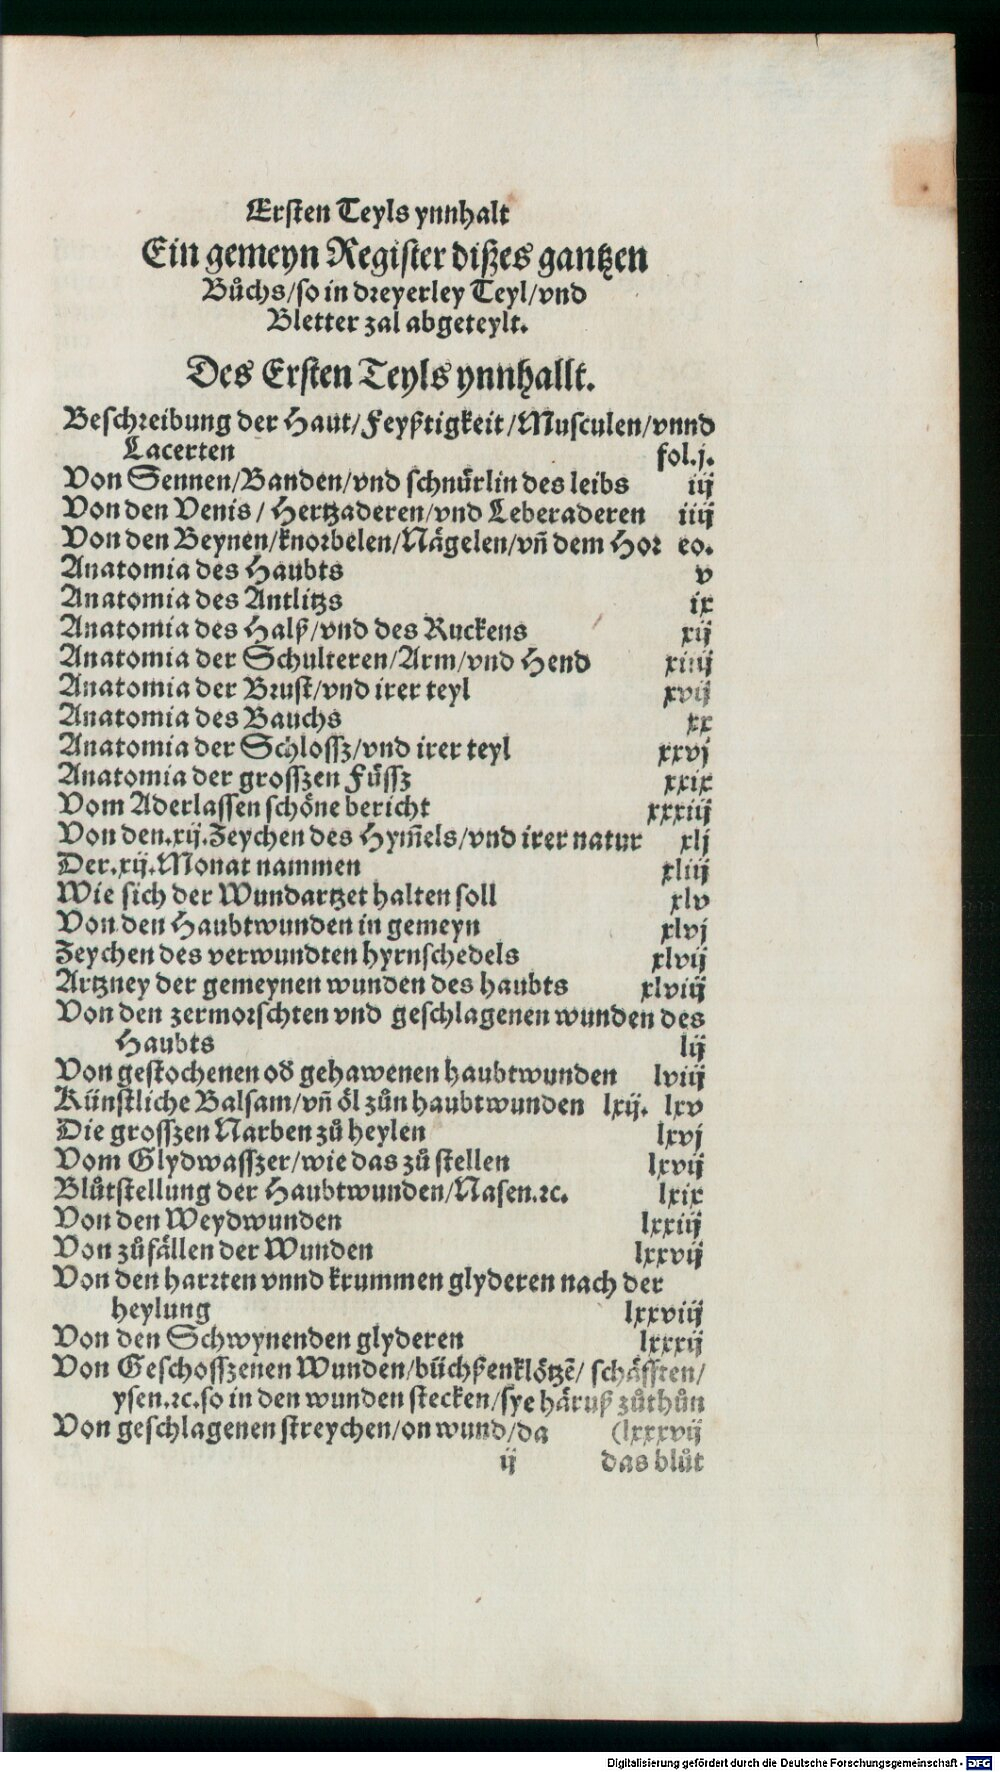 Ersten Teyls ynnhalt
Ein gemeyn Register dißes gantzen
Bůchs/so in dreyerley Teyl/vnd
Bletter zal abgeteylt.
Des Ersten Teyls ynnhallt.
Beschreibung der Haut/Feyßtigkeit/Musculen/vnnd
Lacerten fol.j.
Von Sennen/Banden/vnd schnürlin des leibs iij
Von den Venis/Hertzaderen/vnd Leberaderen iiij
Von den Beynen/knorbelen/Nägelen/vñ dem Hor eo.
Anatomia des Haubts v
Anatomia des Antlitzs ix
Anatomia des Halß/vnd des Ruckens xij
Anatomia der Schulteren/Arm/vnd Hend xiiij
Anatomia der Brust/vnd irer teyl xvij
Anatomia des Bauchs xx
Anatomia der Schlossz/vnd irer teyl xxvj
Anatomia der grosszen Füssz xxix
Vom Aderlassen schöne bericht xxxiij
Von den.xij.Zeychen des Hym̃els/vnd irer natur xlj
Der.xij.Monat nammen xliij
Wie sich der Wundartzet halten soll xlv
Von den Haubtwunden in gemeyn xlvj
Zeychen des verwundten hyrnschedels xlvij
Artzney der gemeynen wunden des haubts xlviij
Von den zermorschten vnd geschlagenen wunden des
Haubts lij
Von gestochenen od̕ gehawenen haubtwunden lviij
Künstliche Balsam/vñ öl zůn haubtwunden lxij. lxv
Die grosszen Narben zů heylen lxvj
Vom Glydwasszer/wie das zů stellen lxvij
Blůtstellung der Haubtwunden/Nasen.ꝛc. lxix
Von den Weydwunden lxxiij
Von zůfällen der Wunden lxxvij
Von den harrten vnnd krummen glyderen nach der
heylung lxxviij
Von den Schwynenden glyderen lxxxij
Von Geschosszenen Wunden/büchßenklötzẽ/ schäfften/
ysen.ꝛc.so in den wunden stecken/sye häruß zůthůn
Von geschlagenen streychen/on wund/da (lxxxvij
ij das blůt
Digitalisierung gefördert durch die Deutsche Forschungsgemeinschaft - DFG